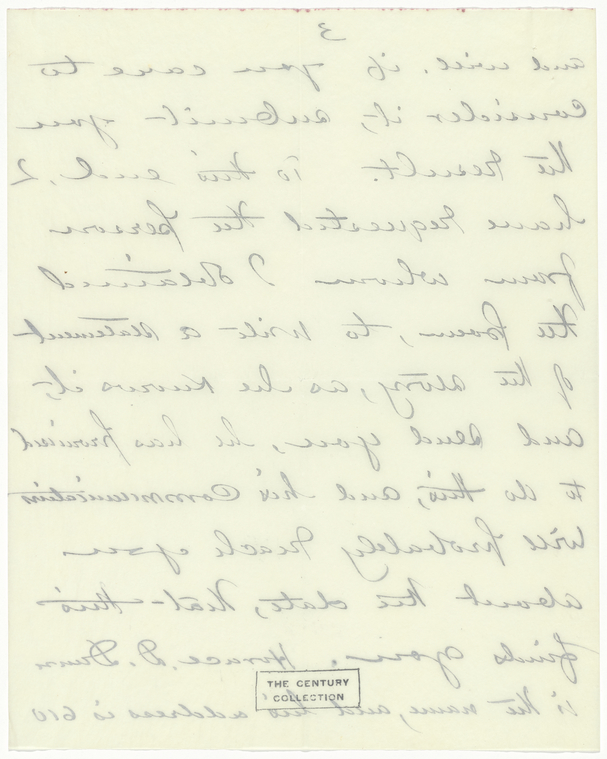 3
and will, if you care to
consider it, submit you
the result. To this end, I
have requested the person
from whom I obtained
the poem, to write a statement
of the story, as he knows it,
and send you, he has promised
to do this, and his communication
will probably reach you
about the date, that this
finds you. Horace D. Dunn
is the name, and his address is 610
THE CENTURY
COLLECTION